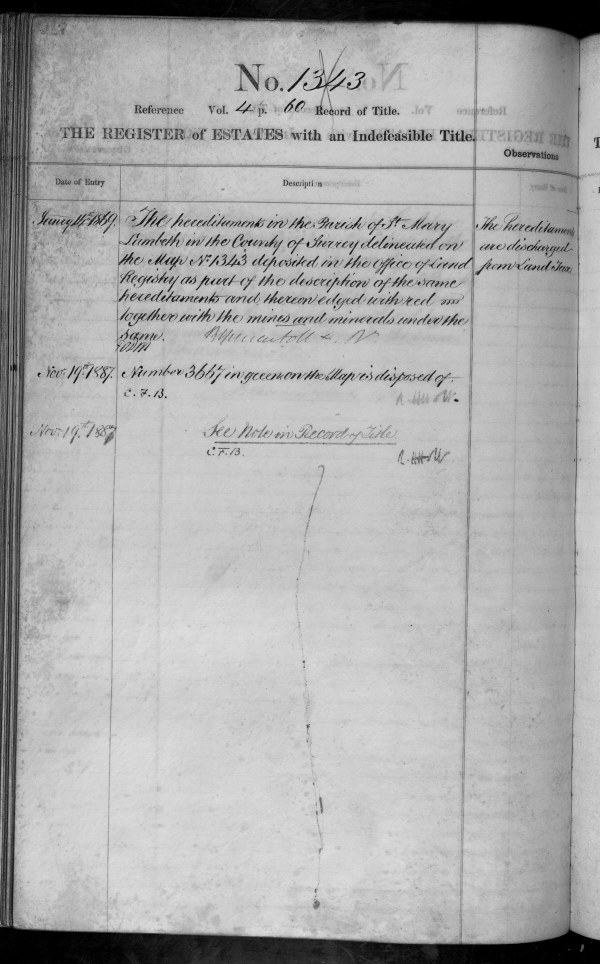 No. 1343
Reference Vol. 4 p. 60 Record of Title.
THE REGISTER of ESTATES with an Indefeasible Title.
Observations
Date of Entry
Description
14th 1869.
The hereditaments in the Parish of St. Mary
Lambeth in the County of Surrey delineated on
the Map No. 1343 deposited in the Office of Land
Registry as part of the description of the same
hereditaments and thereon edged with red
together with the mines and minerals under the
same.
The hereditaments
are discharged
from Land Tax.
Nov. 19th 1887.
Number 3667 in green on the Map is disposed of.
C.F.B.
Nov. 19th 1887
See Note in Record of Title
C.F.B.